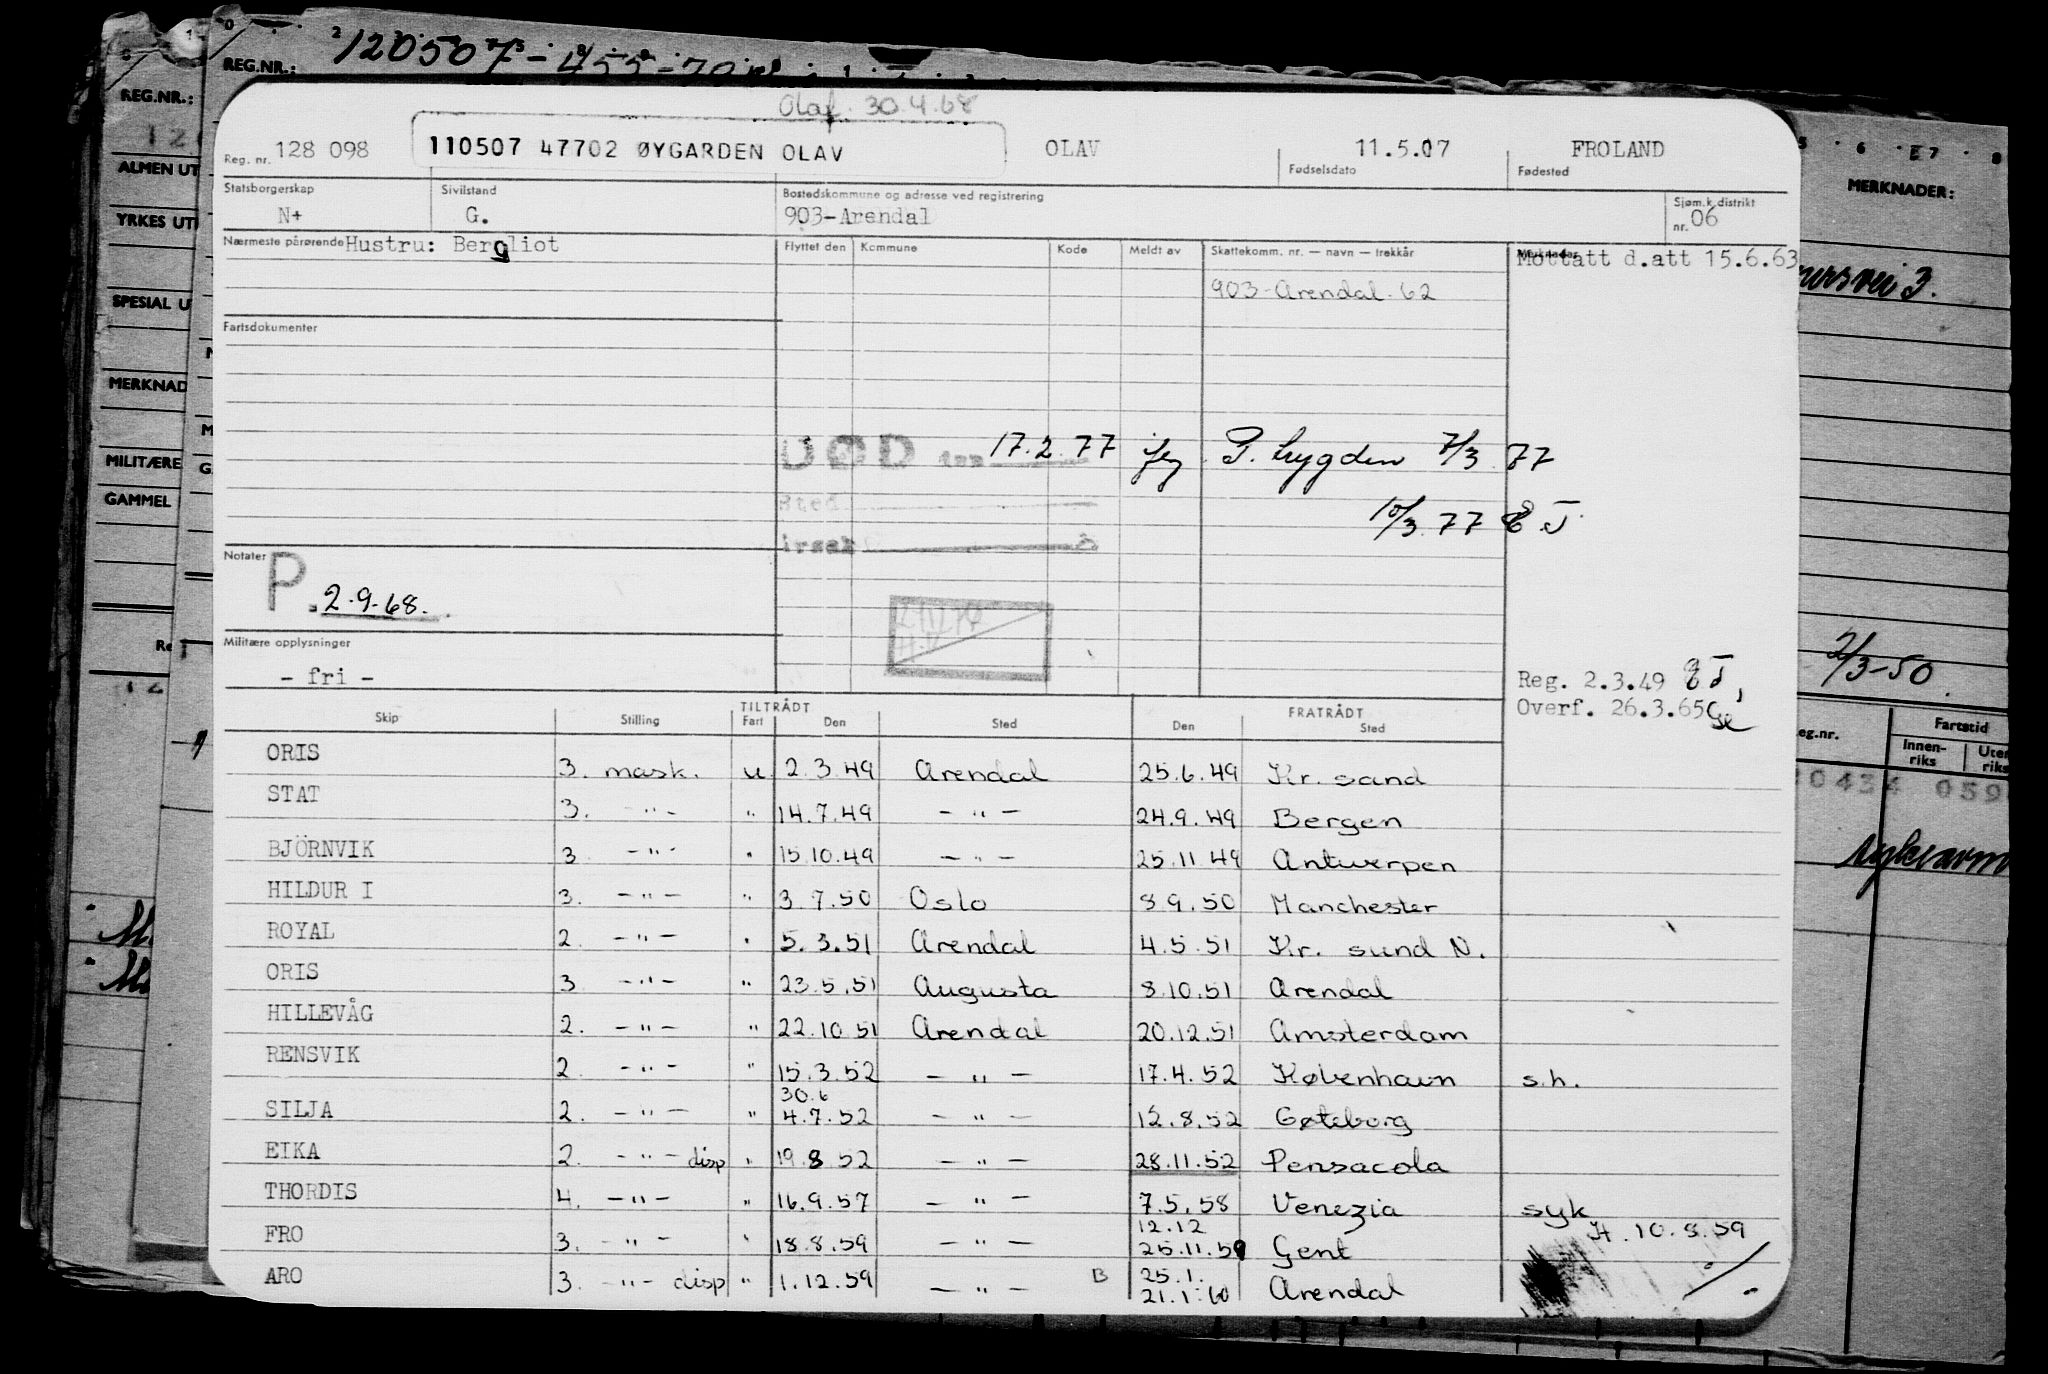 120507-455-70
REG.NR.:
REG.NR.:
Olaf. 30.4.68
Reg. nr. 128 098
110507 47702 ØYGARDEN OLAV
OLAV
11.5.07
Fødselsdato
FROLAND
Fødested
ALMEN UT
Statsborgerskap
N+
Sivilstand
G.
Bostedskommune og adresse ved registrering
903-Arendal
Sjøm.k.distrikt
nr. 06
MERKNADER:
YRKES UT
Nærmeste pårørende Hustru: Bergliot
Flyttet den Kommune Kode Meldt av Skattekomm. nr. — navn — trekkår
Merknader
Mottatt d.att 15.6.63
903-Arendal 62
SPESIAL U
Fartsdokumenter
MERKNAD
MILITÆRE
GAMMEL
DØD den 17.2.77 P. trygden 7/3 77
Sted
Årsak
10/3 77 E J
Notater
P. 2.9.68.
Militære opplysninger
- fri -
2/3-50
Reg. 2.3.49 E J,
Overf. 26.3.65
Skip Stilling TILTRÅDT Fart Den Sted FRATRÅDT Den Sted
Fartstid
Innen-riks
eg.nr.
ORIS 3. mask. u 2.3.49 Arendal 25.6.49 Kr. sand
STAT 3. -"- " 14.7.49 -"- 24.9.49 Bergen
BJÖRNVIK 3 -"- " 15.10.49 -"- 25.11.49 Antwerpen
HILDUR I 3. -"- " 3.7.50 Oslo 8.9.50 Manchester
ROYAL 2. -"- " 5.3.51 Arendal 4.5.51 Kr. sund N.
ORIS 3 -"- " 23.5.51 Augusta 8.10.51 Arendal
HILLEVÅG 2. -"- " 22.10.51 Arendal 20.12.51 Amsterdam
RENSVIK 2 -"- " 15.3.52 -"- 17.4.52 København s.h.
30.6
SILJA 2. -"- " 4.7.52 -"- 12.8.52 Gøteborg
EIKA 2. -"- disp " 19.8.52 -"- 28.11.52 Pensacola
THORDIS 4. -"- " 16.9.57 -"- 7.5.58 Venezia syk
12.12
H. 10.8.59
FRO 3. -"- " 18.8.59 -"- 25.11.59 Gent
25.1.
ARO 3. -"- disp " 1.12.59 -"- B 21.1.60 Arendal